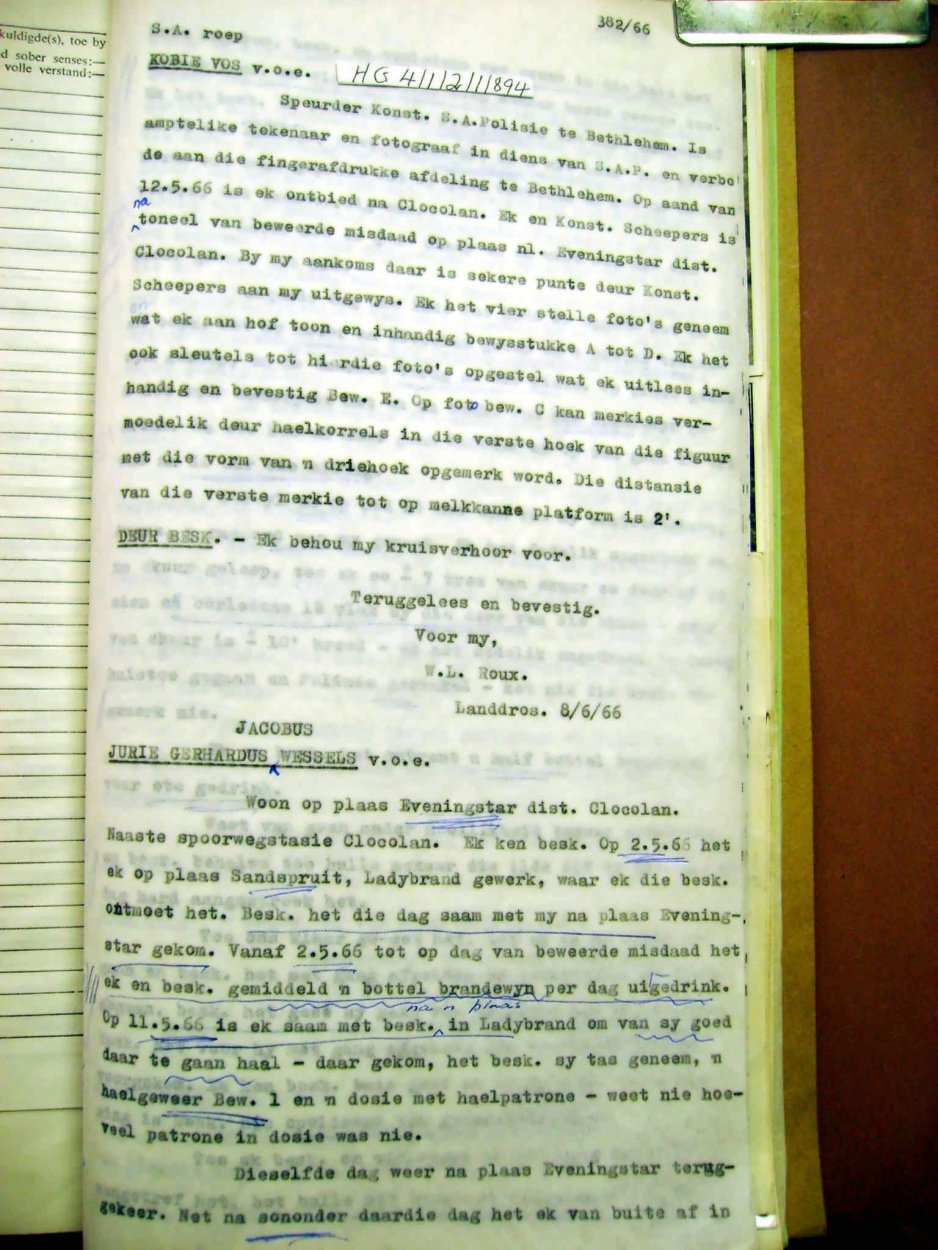 kuldigde(s), toe by
d sober senses:—
volle verstand:—
382/66
S.A. roep
KOBIE VOS v.o.e. HG 4/1/2/1/894
Speurder Konst. S.A.Polisie te Bethlehem. Is
amptelike tekenaar en fotograaf in diens van S.A.P. en verbo
de aan die fingerafdrukke afdeling te Bethlehem. Op aand van
12.5.66 is ek ontbied na Clocolan. Ek en Konst. Scheepers is
na
toneel van beweerde misdaad op plaas nl. Eveningstar dist.
Clocolan. By my aankoms daar is sekere punte deur Konst.
Scheepers aan my uitgewys. Ek het vier stelle foto's geneem
wat ek aan hof toon en inhandig bewysstukke A tot D. Ek het
ook sleutels tot hierdie foto's opgestel wat ek uitlees in-
handig en bevestig Bew. E. Op foto bew. C kan merkies ver-
moedelik deur haelkorrels in die verste hoek van die figuur
met die vorm van 'n driehoek opgemerk word. Die distansie
van die verste merkie tot op melkkanne platform is 2'.
DEUR BESK. - Ek behou my kruisverhoor voor.
Teruggelees en bevestig.
Voor my,
W.L. Roux.
Landdros. 8/6/66
JACOBUS
JURIE GERHARDUS WESSELS v.o.e.
Woon op plaas Eveningstar dist. Clocolan.
Naaste spoorwegstasie Clocolan. Ek ken besk. Op 2.5.66 het
ek op plaas Sandspruit, Ladybrand gewerk, waar ek die besk.
ontmoet het. Besk. het die dag saam met my na plaas Evening-
star gekom. Vanaf 2.5.66 tot op dag van beweerde misdaad het
ek en besk. gemiddeld 'n bottel brandewyn per dag uigedrink.
na 'n plaas
Op 11.5.66 is ek saam met besk. in Ladybrand om van sy goed
daar te gaan haal - daar gekom, het besk. sy tas geneem, 'n
haelgeweer Bew. 1 en 'n dosie met haelpatrone - weet nie hoe-
veel patrone in dosie was nie.
Dieselfde dag weer na plaas Eveningstar terug-
gekeer. Net na sononder daardie dag het ek van buite af in